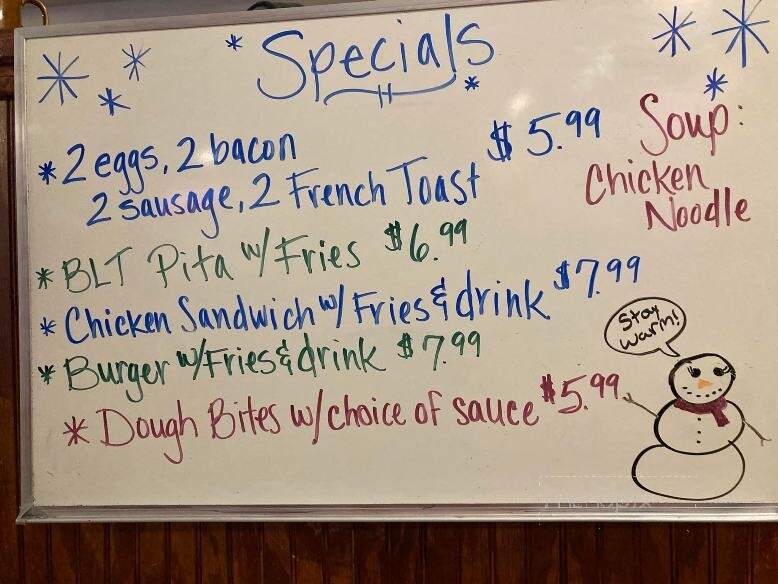 * Specials *
* 2 eggs, 2 bacon
2 sausage, 2 French Toast $5.99
* BLT Pita w/ Fries $6.99
* Chicken Sandwich w/ Fries & drink $7.99
* Burger w/ Fries & drink $7.99
* Dough Bites w/ choice of sauce $5.99
Soup:
Chicken
Noodle
Stay
warm!